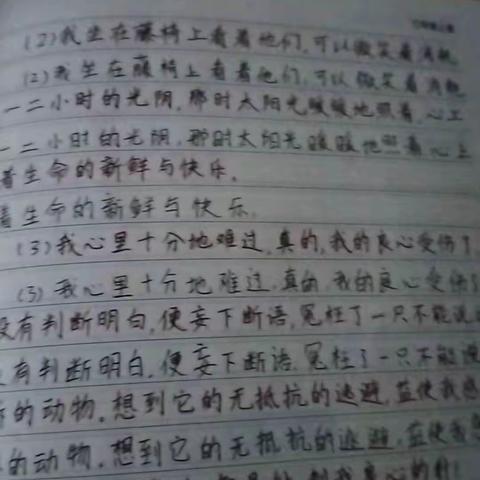 (2)我坐在藤椅上看着他们,可以微笑着消耗
(2)我坐在藤椅上看着他们,可以微笑着消耗
一二小时的光阴,那时太阳光暖暖地照着,心上
一二小时的光阴,那时太阳光暖暖地照着心上
着生命的新鲜与快乐。
着生命的新鲜与快乐。
(3)我心里十分地难过,真的,我的良心受伤了,
(3)我心里十分地难过,真的,我的良心受伤了
没有判断明白,便妄下断语,冤枉了一只不能说
没有判断明白,便妄下断语,冤枉了一只不能说
的动物。想到它的无抵抗的逃避,益使我感
的动物。想到它的无抵抗的逃避,益使我感